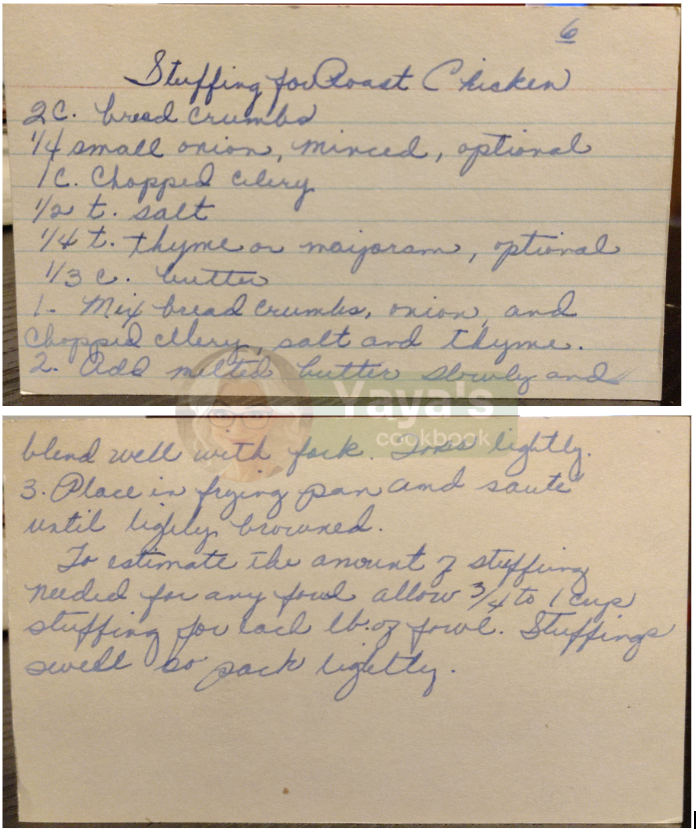 6
Stuffing for Roast Chicken
2 c. bread crumbs
1/4 small onion, minced, optional
1 c. chopped celery
1/2 t. salt
1/4 t. thyme or majoram, optional
1/3 c. butter
1. Mix bread crumbs, onion, and
chopped cellery, salt and thyme.
2. Add melted butter slowly and
Yaya's
cookbook
blend well with fork. Toss lightly.
3. Place in frying pan and sauté
until lighly browned.
To estimate the amount of stuffing
needed for any fowl allow 3/4 to 1 cup
stuffing for each lb. of fowl. Stuffings
swell so pack lightly.